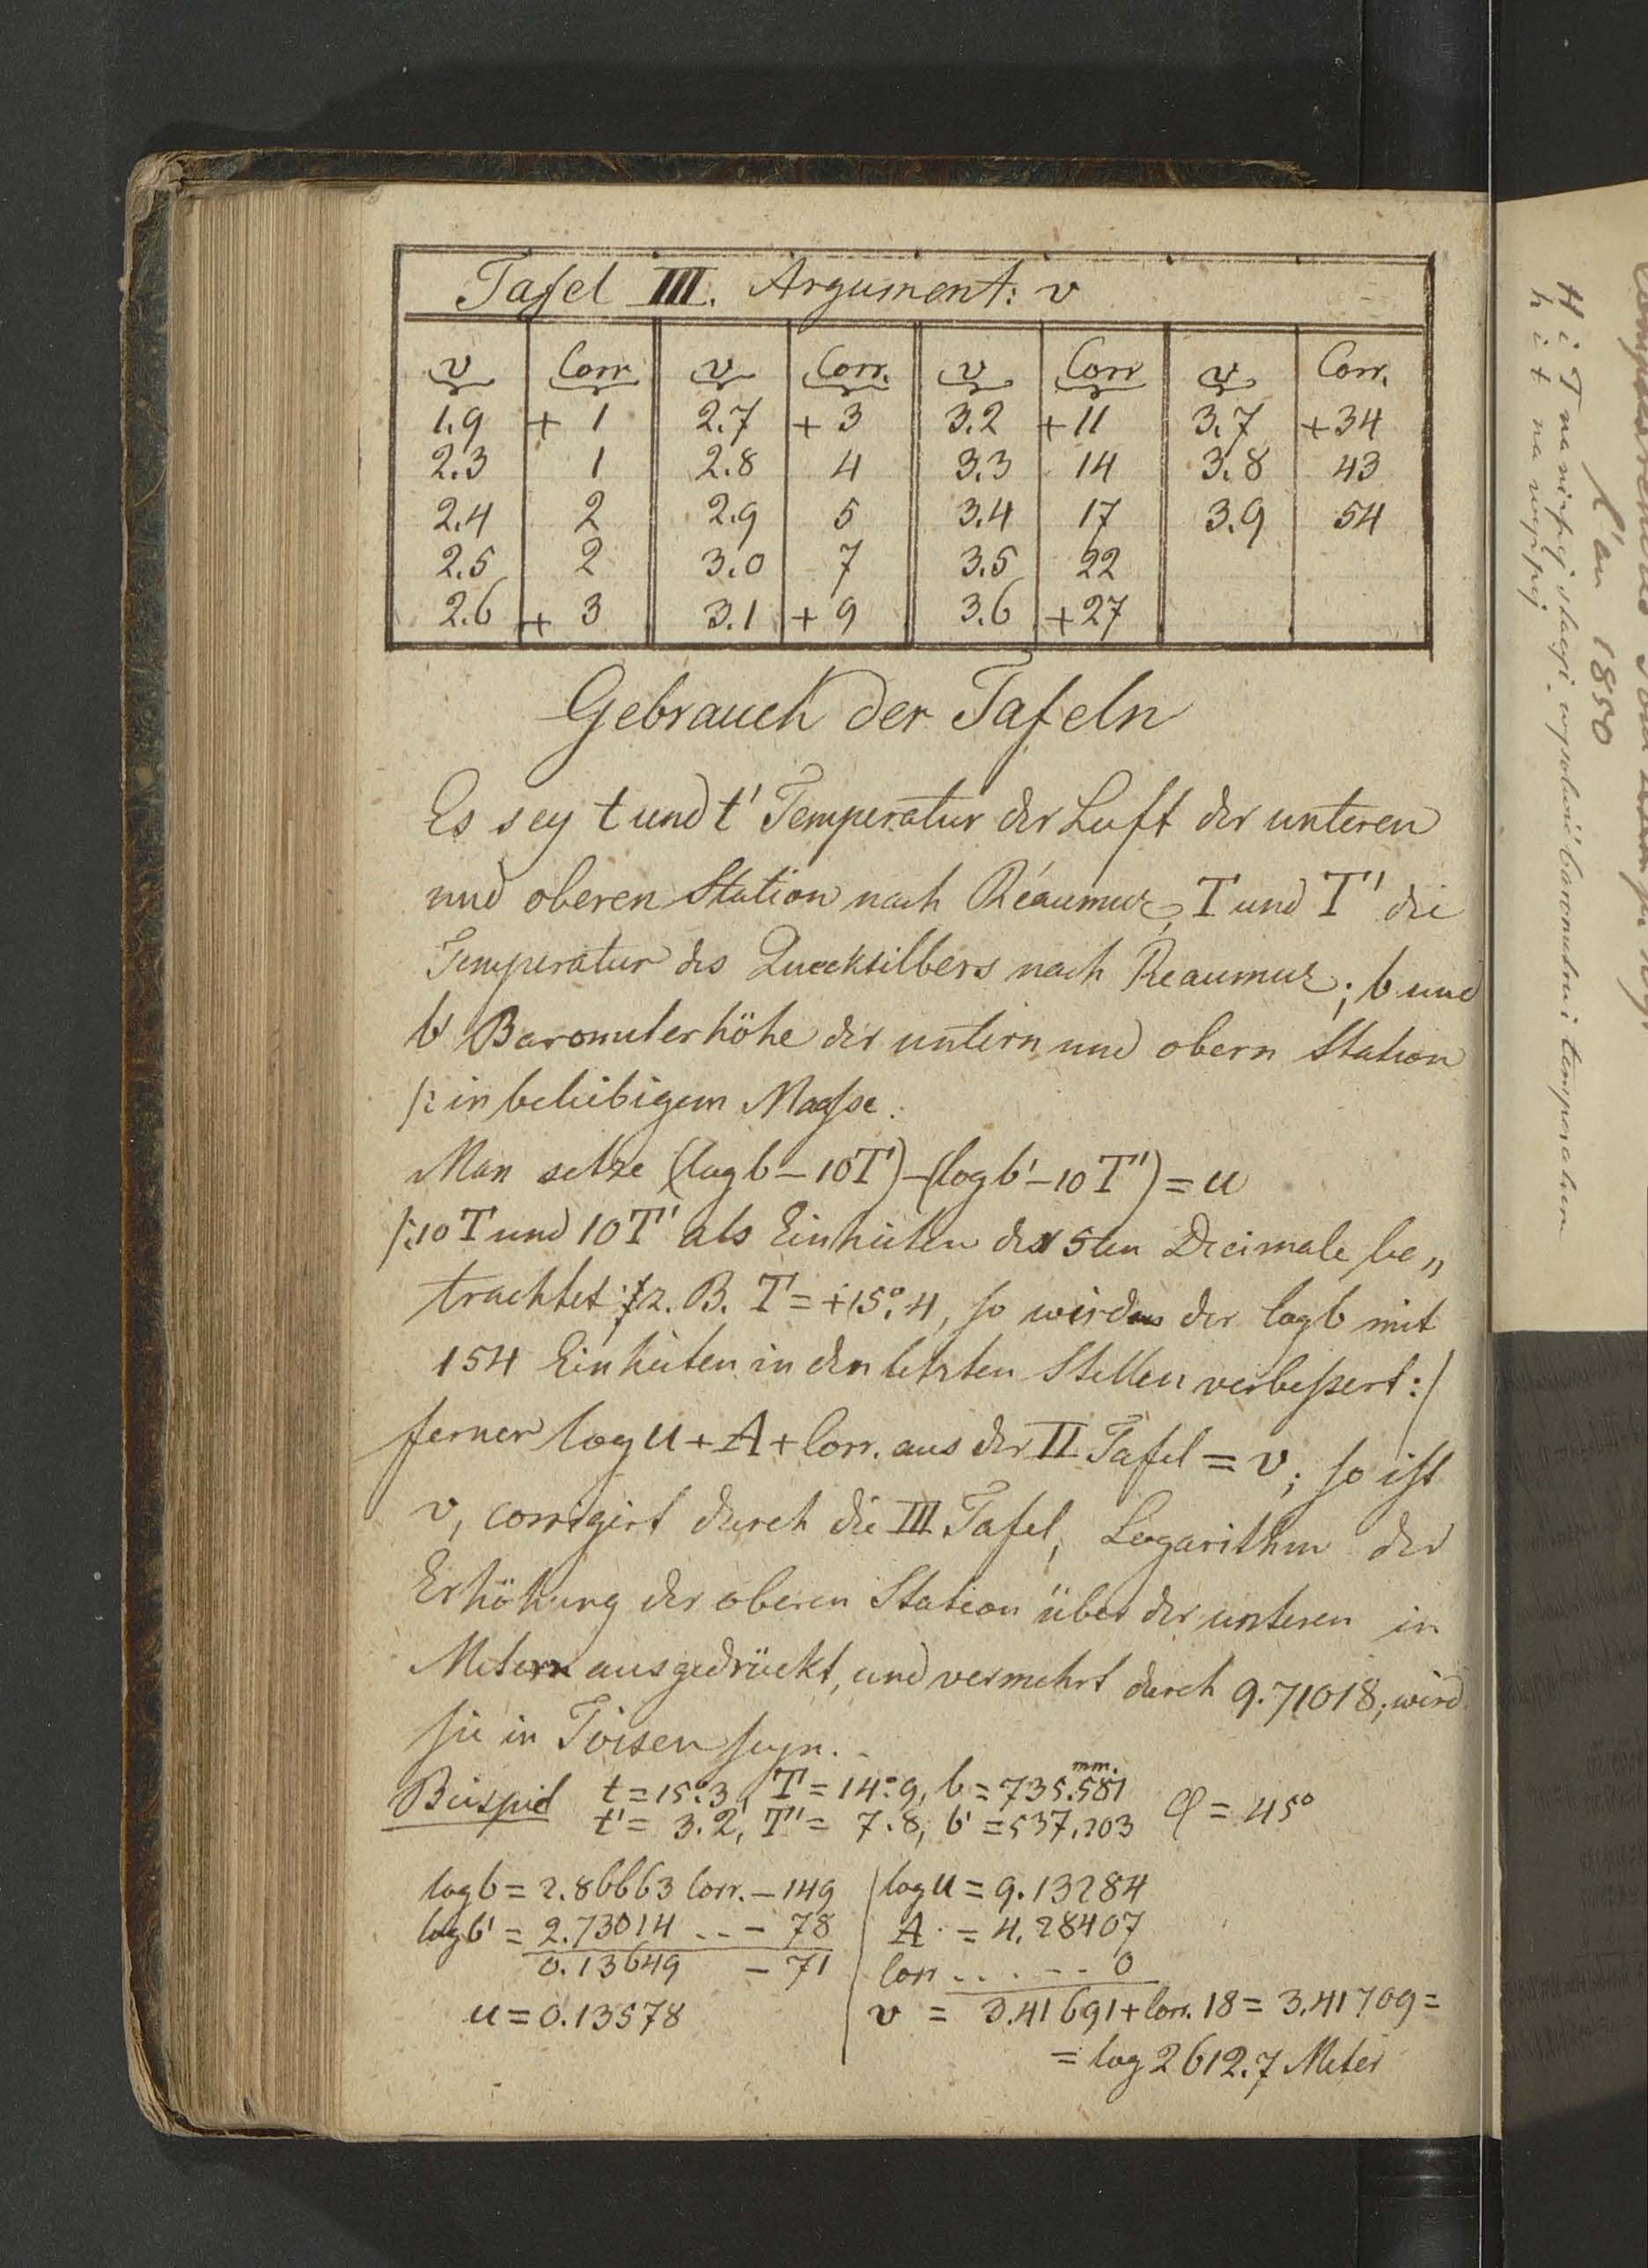 Tafel III. Argument: v
v Corr v Corr. v Corr v Corr.
1.9 + 1 2.7 + 3 3.2 + 11 3.7 + 34
2.3 1 2.8 4 3.3 14 3.8 43
2.4 2 2.9 5 3.4 17 3.9 54
2.5 2 3.0 7 3.5 22
2.6 + 3 3.1 + 9 3.6 + 27
Gebrauch der Tafeln
Es sey t und t' Temperatur der Luft der unteren
und oberen Station nach Réaumur, T und T' die
Temperatur des Quecksilbers nach Reaumur; b und
b' Barometerhöhe der untern und obern Station
/: in beliebigem Maaße.
Man setze (log b – 10T) – (log b' – 10T') = u
/: 10T und 10T' als Einheiten der 5ten Decimale be„
trachtet; z. B. T = +15°.4, so wird der log b mit
154 Einheiten in den letzten Stellen verbeßert :/
ferner log u + A + Corr. aus der II Tafel = v; so ist
v, corrigirt durch die III Tafel, Logarithm der
Erhöhung der oberen Station über der unteren in
Metern ausgedrückt, und vermehrt durch 9.71018; wird
sie in Toisen seyn.
Beispiel t = 15°.3, T = 14°.9, b = 735.581 mm.
t' = 3.2, T' = 7.8, b' = 537.203 φ = 45°
log b = 2.86663 Corr. – 149
log b' = 2.73014 .. – 78
0.13649 – 71
u = 0.13578
log u = 9.13284
A = 4.28407
Corr ..... 0
v = 3.41691 + Corr. 18 = 3.41709 =
= log 2612.7 Meter
l'an 1850
H i T na niższej stacyi wysokość barometru i temperatura
h i t na wyższej